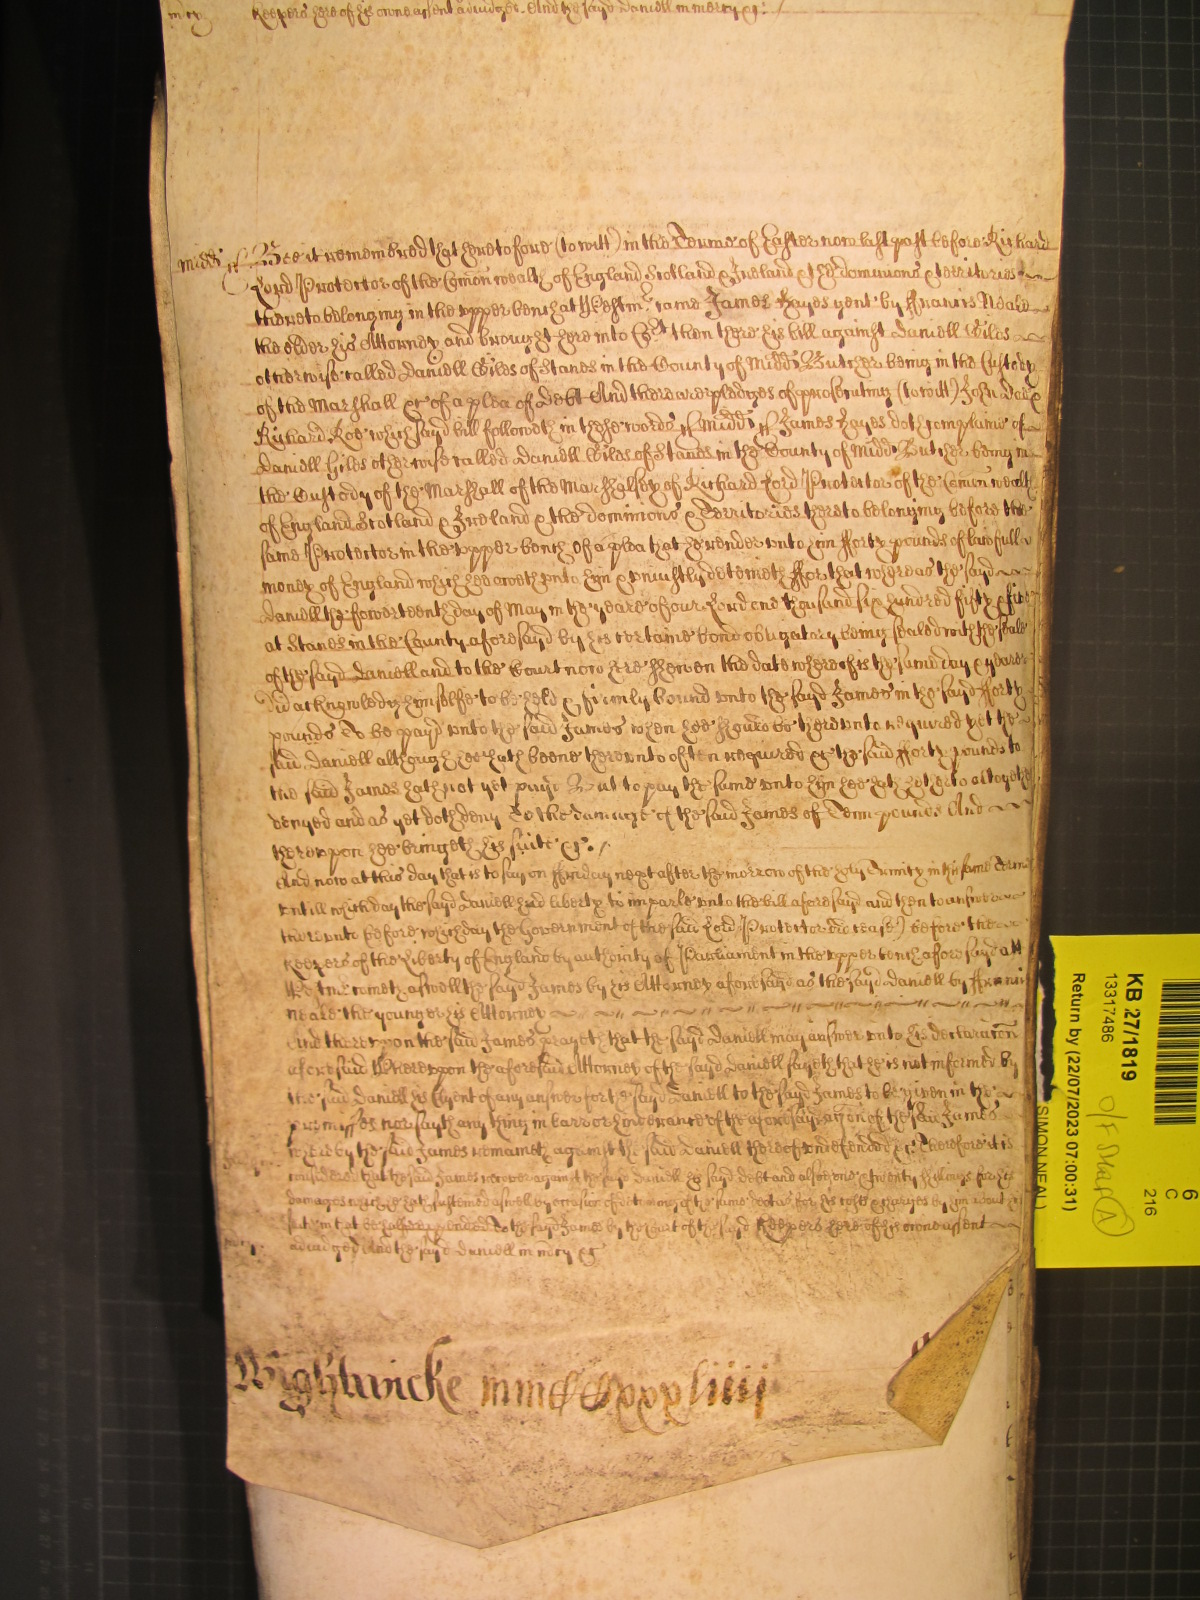 keepers here of his owne assent adiudged. And the sayd Daniell in mercy &c. /
Midd ss Bee it remembred that heretofore (to witt) in the Terme of Easter now last past before Richard
Lord Protector of the Comon wealth of England Scotland & Ireland & the dominions & territories
thereto belonging in the upper bench at Westmr came James Hayes gent by Francis Neale
the elder his Attorney and brought here into Court then there his bill against Daniell Giles
otherwise called Daniell Giles of Stanes in the County of Midd Butcher being in the Custody
of the Marshall &c of a plea of Debt And there are pledges of prosecuting (to witt) John Doe &
Richard Roe which sayd bill followeth in these words ss Midd ss James Hayes doth complaine of
Daniell Giles otherwise called Daniell Giles of Stanes in the County of Midd Butcher being in
the Custody of the Marshall of the Marshalsey of Richard Lord Protector of the Comon wealth
of England Scotland & Ireland & the dominions & Territories thereto belonging before the
same Protector in the upper bench of a plea that he render unto him fforty pounds of lawfull
money of England which hee oweth unto him & uniustly deteineth ffor that whereas the sayd
Daniell the fowerteenth day of May in the yeare of our Lord one thousand six hundred fifty & five
at Stanes in the County aforesayd by his certaine bond obligatory being sealed with the seale
of the sayd Daniell and to the Court now here shewen the date whereof is the same day & yeare
did acknowledg himselfe to be held & firmly bound unto the sayd James in the sayd fforty
pounds To be payd unto the said James when hee should be thereunto required yet the
said Daniell although hee hath beene thereunto often required &c the said fforty pounds to
the said James hath not yet payd But to pay the same unto him hee hath hitherto altogether
denyed and as yet doth deny To the damage of the said James of Tenn pounds And
thereupon hee bringeth his suite &c. /
And now at this day that is to say on ffriday next after the morrow of the holy Trinity in this same Terme
untill which day the sayd Daniell had liberty to imparle unto the bill aforesayd and then to answere
thereunto before which day the Government of the said Lord Protector did cease) before the
keepers of the Liberty of England by authority of Parliament in the upper bench aforesayd att
Westmr cometh aswell the sayd James by his Attorney aforesaid as the sayd Daniell by ffrancis
Neale the younger his Attorney
And thereupon the said James prayeth that the sayd Daniell may answer unto his declaracon
aforesaid Whereupon the aforesaid Attorney of the sayd Daniell sayeth that he is not informed by
the said Daniell his Clyent of any answer for the sayd Daniell to the sayd James to be given in the
premisses nor sayth any thing in barr or hinderance of the aforesayd accon of the said James
whereby the said James remaineth against the said Daniell thereof undefended &c Therefore it is
considered that the said James recover against the sayd Daniell his sayd debt and alsoe one & twenty shillings for his
damages which he hath susteined aswell by occasion of deteining of the same debt as for his costs & charges by him about his
suite in that behalfe expended to the sayd James by the Court of the sayd Keepers here of his owne assent
adiudged And the sayd Daniell in mercy &c
Wightwicke
KB 27/1819
13317486
Return by (22/07/2023 07:00:31)
SIMON NEAL
6
C
216